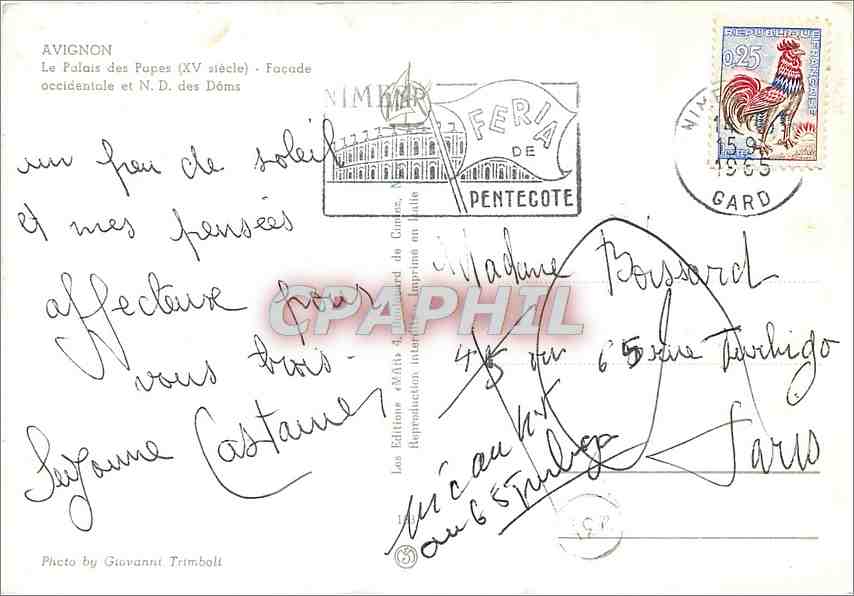 AVIGNON
Le Palais des Papes (XV siècle) - Façade
occidentale et N. D. des Dôms
un peu de soleil
et mes pensées
affectueuse pour
vous trois -
Suzanne Castanier
Photo by Giovanni Trimboli
Les Editions «MAR» 4, Boulevard de Cimiez, N
Reproduction interdite - Imprimé en Italie
NIMES
FERIA
DE
PENTECOTE
REPUBLIQUE FRANÇAISE
0,25
NIMES
14
15-9
1965
GARD
Madame Boissard
45 ou 65 rue Turbigo
Paris
inconnu
au 65 Turbigo
CPAPHIL